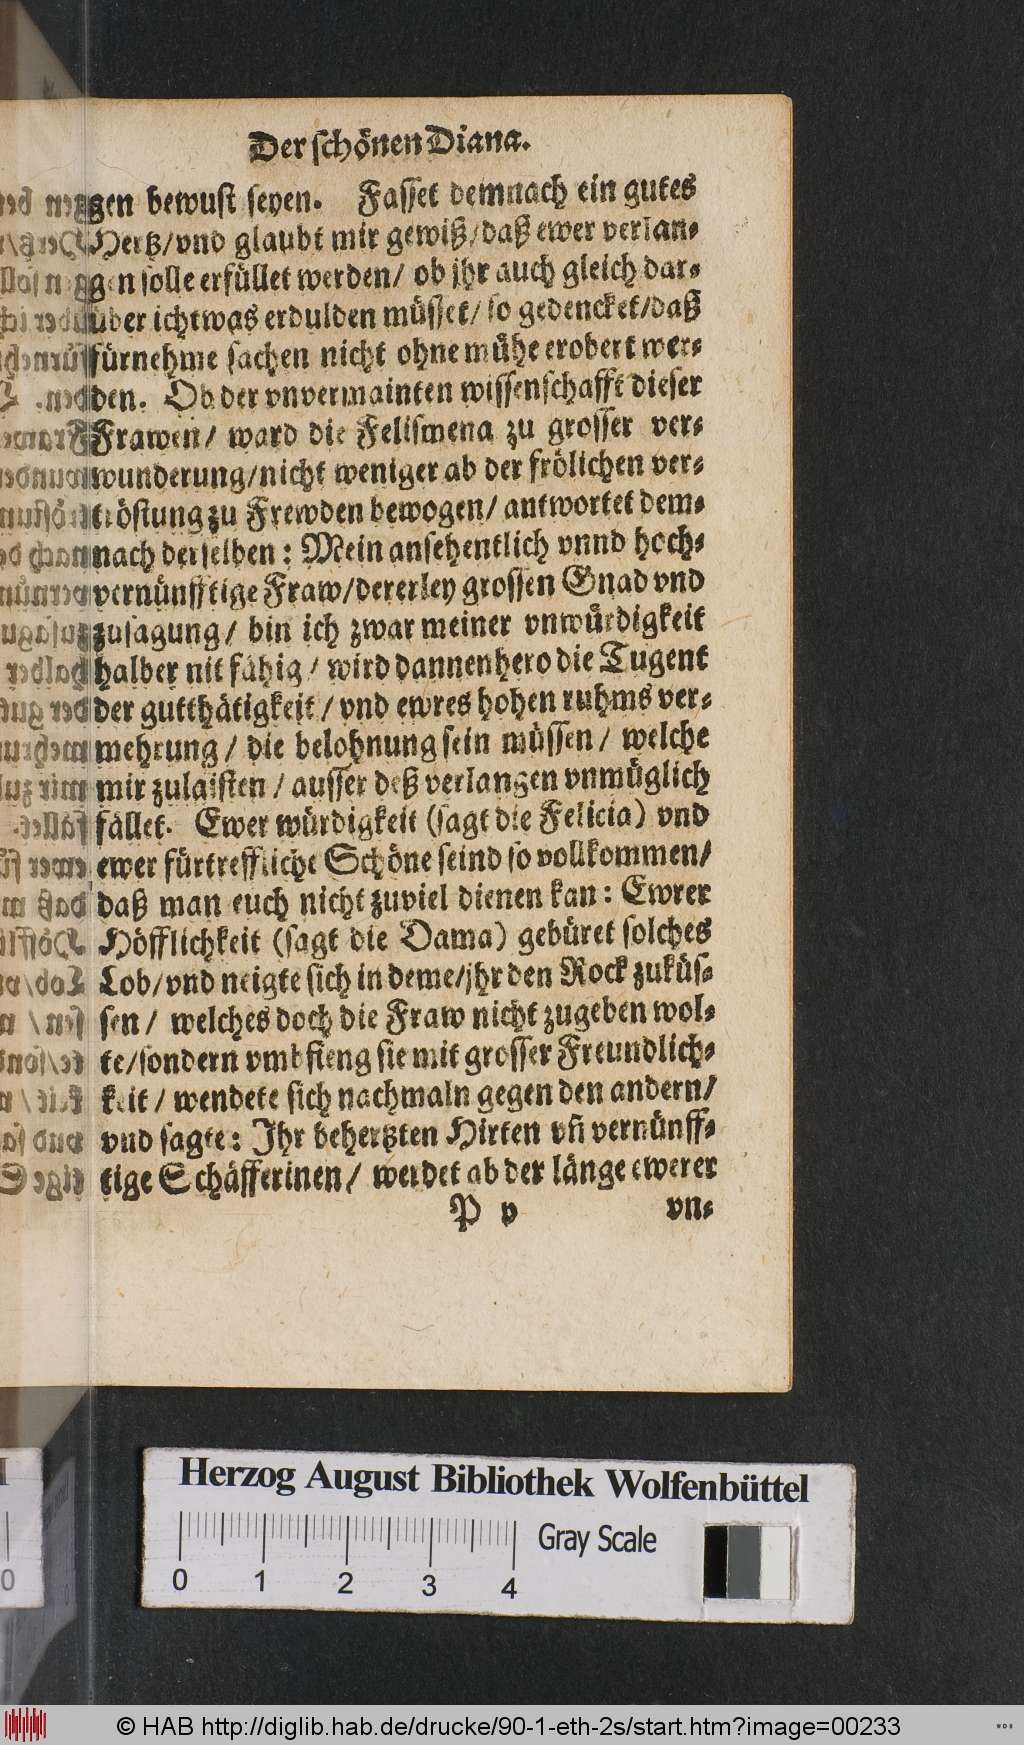 Der schönen Diana.
gen bewust seyen. Fasset demnach ein gutes
Hertz/vnd glaubt mir gewiß/daß ewer verlan-
gen solle erfüllet werden/ ob jhr auch gleich dar-
über ichtwas erdulden müsset/ so gedencket/daß
fürnehme sachen nicht ohne mühe erobert wer-
den. Ob der vnvermainten wissenschafft dieser
Frawen/ ward die Felismena zu grosser ver-
wunderung/nicht weniger ab der frölichen ver-
tröstung zu Frewden bewogen/ antwortet dem-
nach derselben: Mein ansehentlich vnnd hoch-
vernünfftige Fraw/dererley grossen Gnad vnd
zusagung/ bin ich zwar meiner vnwürdigkeit
halber nit fähig/ wird dannenhero die Tugent
der gutthätigkeit/ vnd ewres hohen ruhms ver-
mehrung/ die belohnung sein müssen/ welche
mir zulaisten/ ausser deß verlangen vnmüglich
fället. Ewer würdigkeit (sagt die Felicia) vnd
ewer fürtreffliche Schöne seind so vollkommen/
daß man euch nicht zuviel dienen kan: Ewrer
Höfflichkeit (sagt die Dama) gebüret solches
Lob/vnd neigte sich in deme/jhr den Rock zuküs-
sen/ welches doch die Fraw nicht zugeben wol-
te/sondern vmbfieng sie mit grosser Freundlich-
keit/ wendete sich nachmaln gegen den andern/
vnd sagte: Jhr behertzten Hirten vñ vernünff-
tige Schäfferinen/ werdet ab der länge ewerer
P v vn-
Herzog August Bibliothek Wolfenbüttel
Gray Scale
0 1 2 3 4
© HAB http://diglib.hab.de/drucke/90-1-eth-2s/start.htm?image=00233